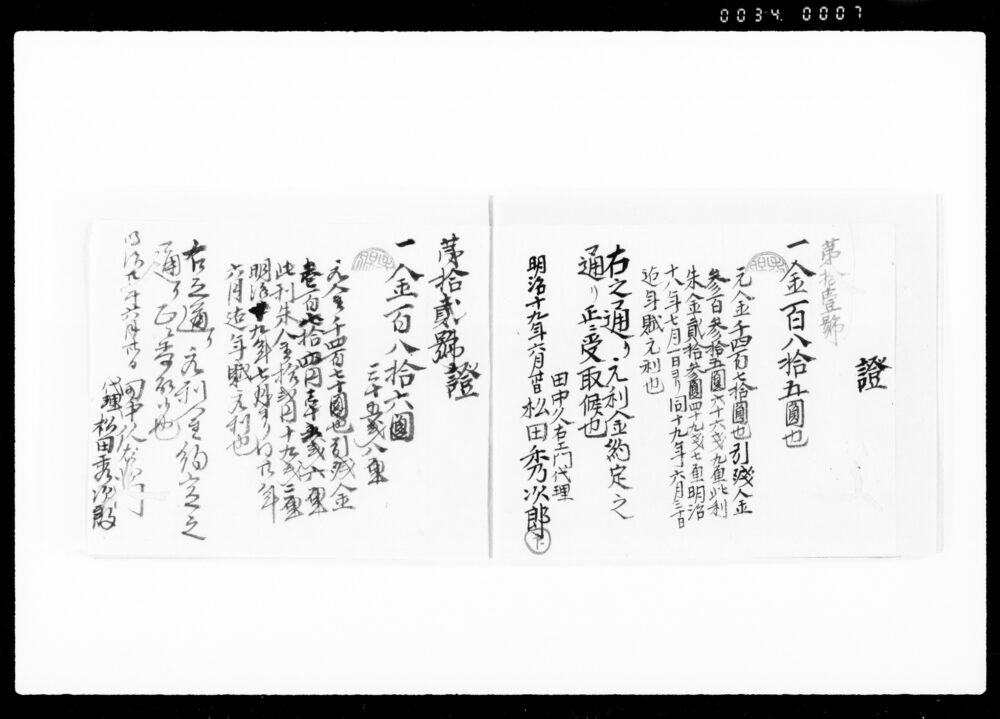 0034 0007
第拾壹號
證
一金百八拾五圓也
元金千四百七拾圓也引残金
参百参拾五圓六十六戋九厘此利
朱金貳拾参圓四十九戋七厘明治
十八年七月一日ヨリ同十九年六月三十日
迄年賦元利也
右之通り元利金約定之
通り正ニ受取候也
田中久右エ門代理
明治十九年六月廿日 松田秀次郎
第拾貳號
證
一金百八拾六圓
三十五戋八厘
元金千四百七十圓也引残金
壱百七拾四円
此利朱金拾貳円十九戋三厘
明治十九年七月ヨリ
六月迄年賦元利也
右之通り元利金約定之
通り正ニ
田中久右衛門
代理 松田秀次郎